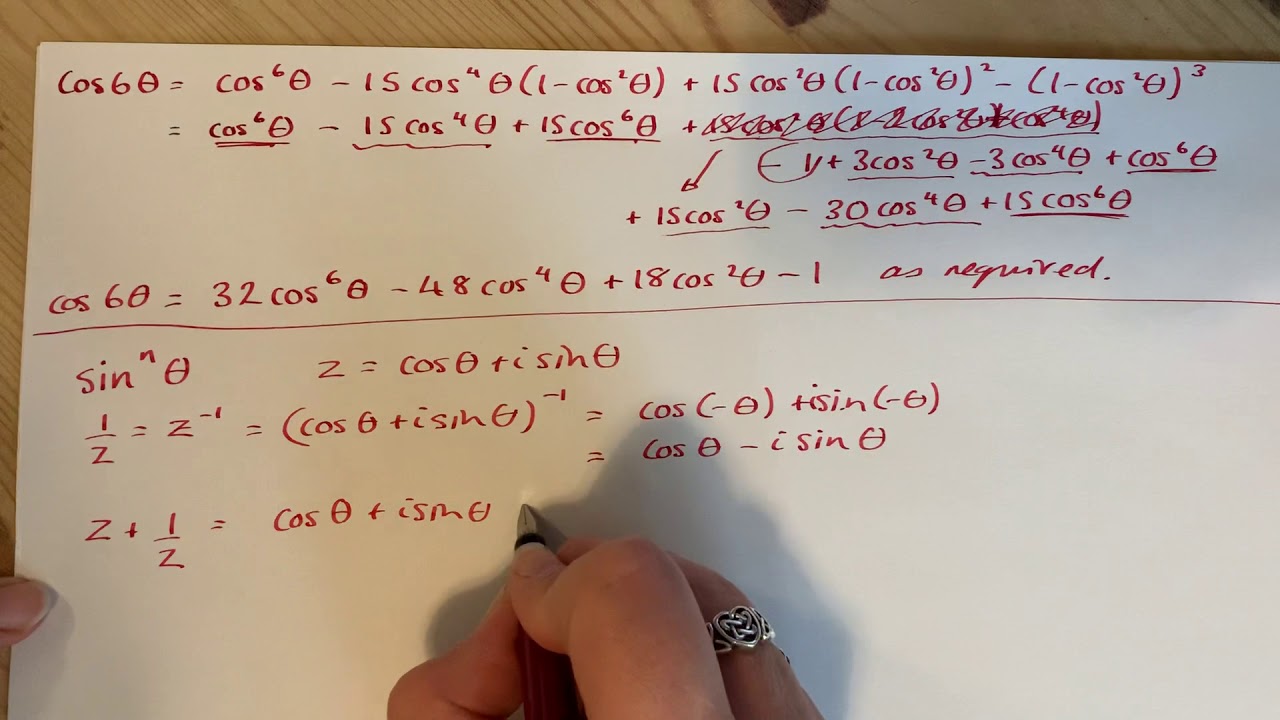 cos6θ = cos⁶θ − 15cos⁴θ(1−cos²θ) + 15cos²θ(1−cos²θ)² − (1−cos²θ)³
= cos⁶θ − 15cos⁴θ + 15cos⁶θ +
− 1 + 3cos²θ − 3cos⁴θ + cos⁶θ
+ 15cos²θ − 30cos⁴θ + 15cos⁶θ
cos6θ = 32cos⁶θ − 48cos⁴θ + 18cos²θ − 1 as required.
sinⁿθ z = cosθ + isinθ
1/z = z⁻¹ = (cosθ + isinθ)⁻¹ = cos(−θ) + isin(−θ)
= cosθ − isinθ
z + 1/z = cosθ + isinθ